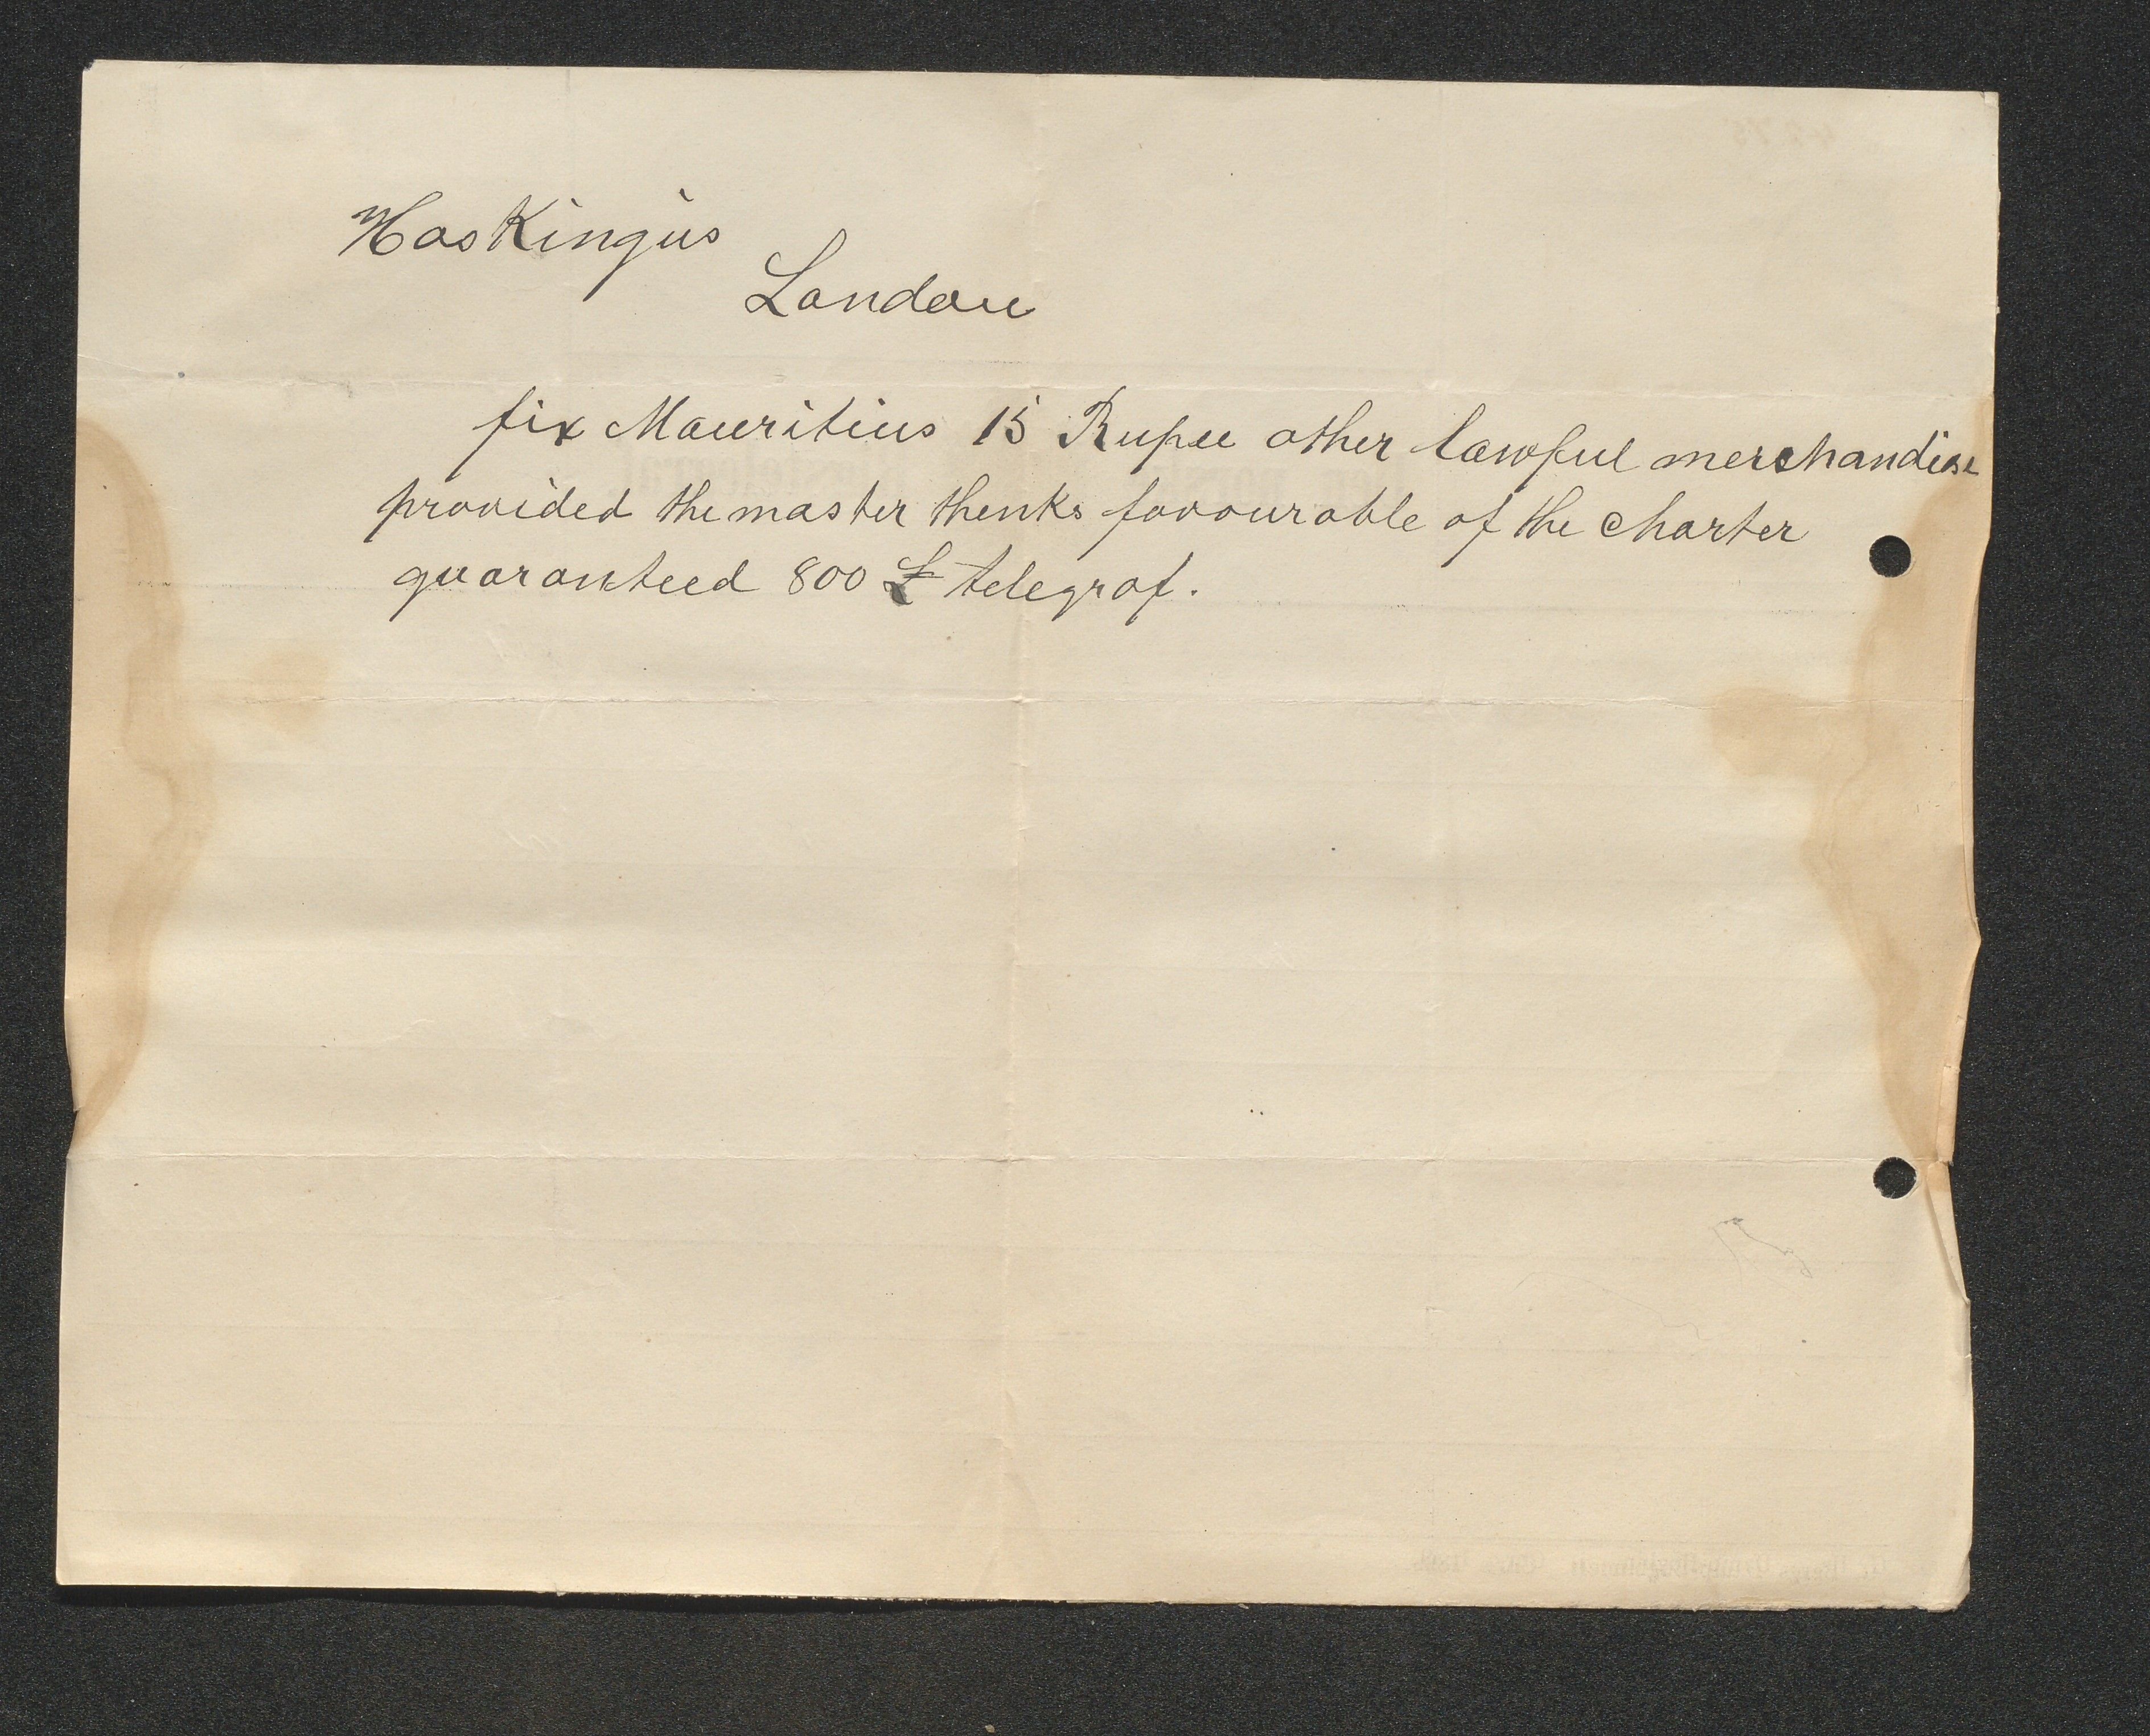 Hoskingus
London
fix Mauritius 15 Rupee other lawful merchandise
provided the master thenks favourable of the charter
guaranteed 800 £ telegraf.